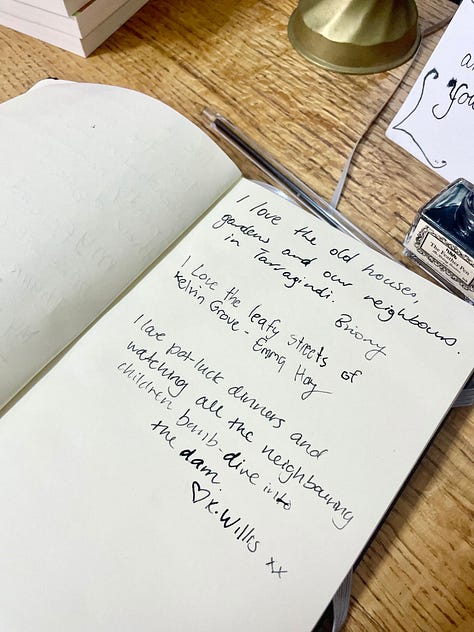 I love the old houses,
gardens and our neighbours
in Tarragindi. Briony
I Love the leafy streets of
Kelvin Grove - Emma Hoy
I love pot-luck dinners and
watching all the neighbouring
children bomb-dive into
the dam.
♡K. Willis xx
you